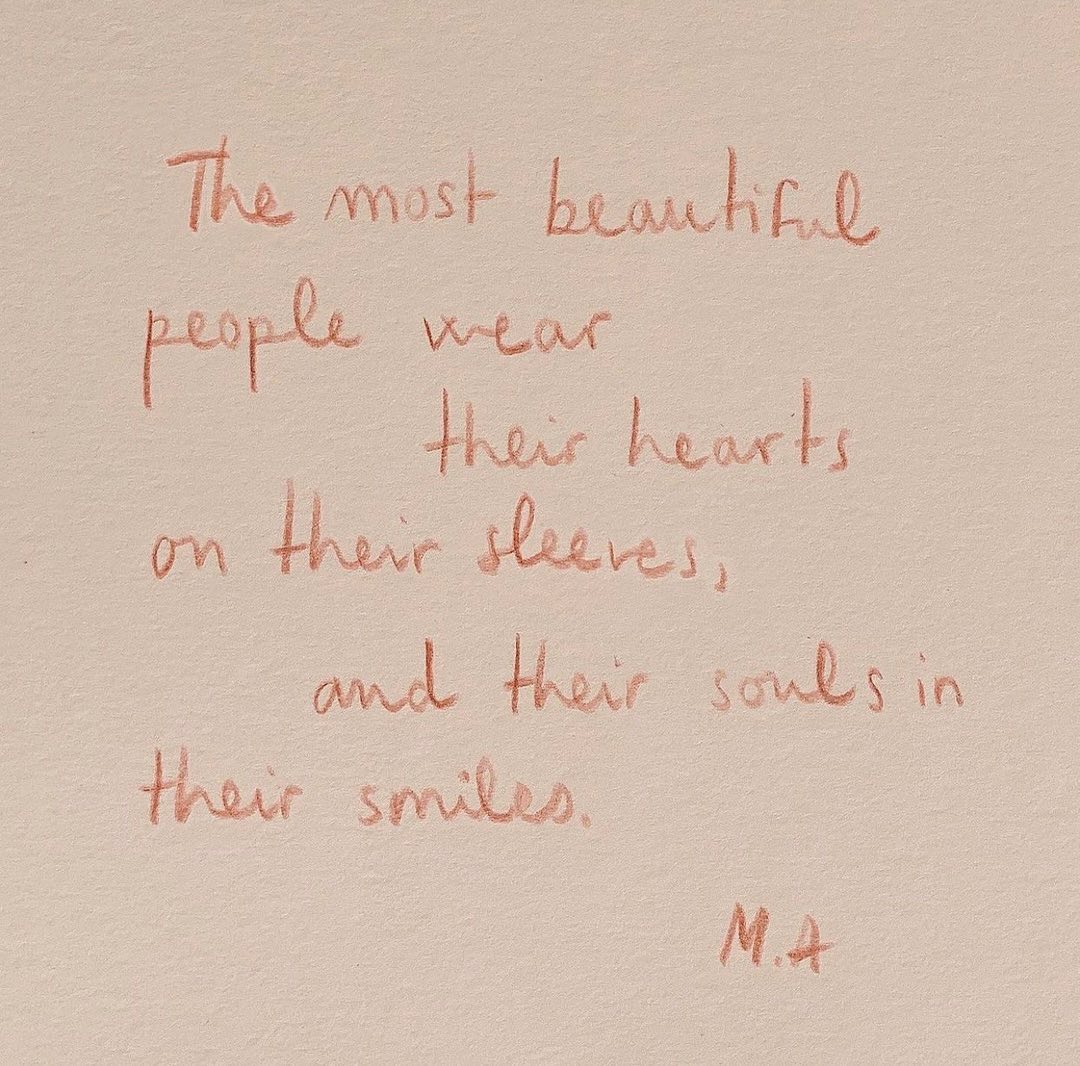 The most beautiful
people wear
their hearts
on their sleeves,
and their souls in
their smiles.
M.A